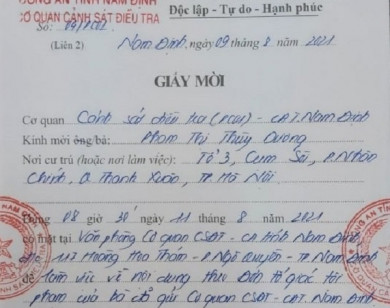 CÔNG AN TỈNH NAM ĐỊNH
CƠ QUAN CẢNH SÁT ĐIỀU TRA
Độc lập - Tự do - Hạnh phúc
Số:
(Liên 2)
Nam Định, ngày 09 tháng 8 năm 2021
GIẤY MỜI
Cơ quan Cảnh sát điều tra (PC01) - CAT. Nam Định
Kính mời ông/bà: Phạm Thị Thùy Dương
Nơi cư trú (hoặc nơi làm việc): Tổ 3, Cụm Sãi, P. Nhân
Chính, Q Thanh Xuân, TP Hà Nội
Đúng 08 giờ 30 ngày 11 tháng 8 năm 2021
có mặt tại Văn phòng Cơ quan CSĐT - CA tỉnh Nam Định,
Hoàng Hoa Thám - P. Ngô Quyền - TP Nam Định
để làm việc về nội dung theo Đơn tố giác tội
phạm của bà đã gửi Cơ quan CSĐT - CAT. Nam Định